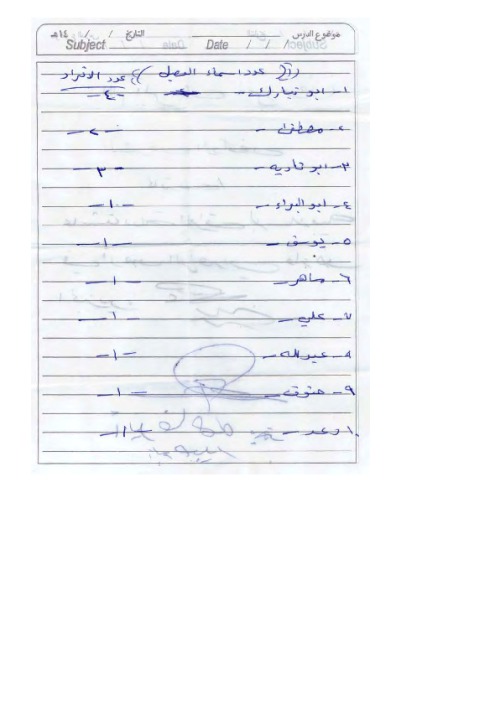 موضوع الدرس / / التاريخ / / ١٤هـ
Subject Date / /
عدد اسماء عدد الافراد
١- ابو تبارك - ٤ -
٢- مصطفى - ٢ -
٣- ابو نادية - ٣ -
٤- ابو البراء - ١ -
٥- يوسف - ١ -
٦- ماهر - ١ -
٧- علي - ١ -
٨- عبدالله - ١ -
٩- - ١ -
١٠- وعد - ١ -